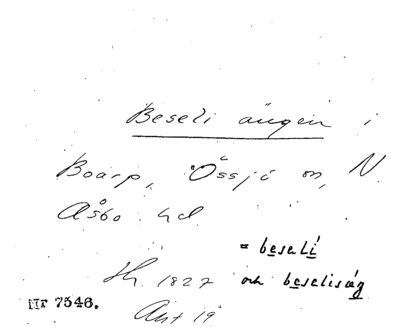 Beseli ängen i
Boarp, Össjö sn, N.
Åsbo hd.
= beseli
Sk. 1827 och beseliság
Akt 19
Nr 7546.